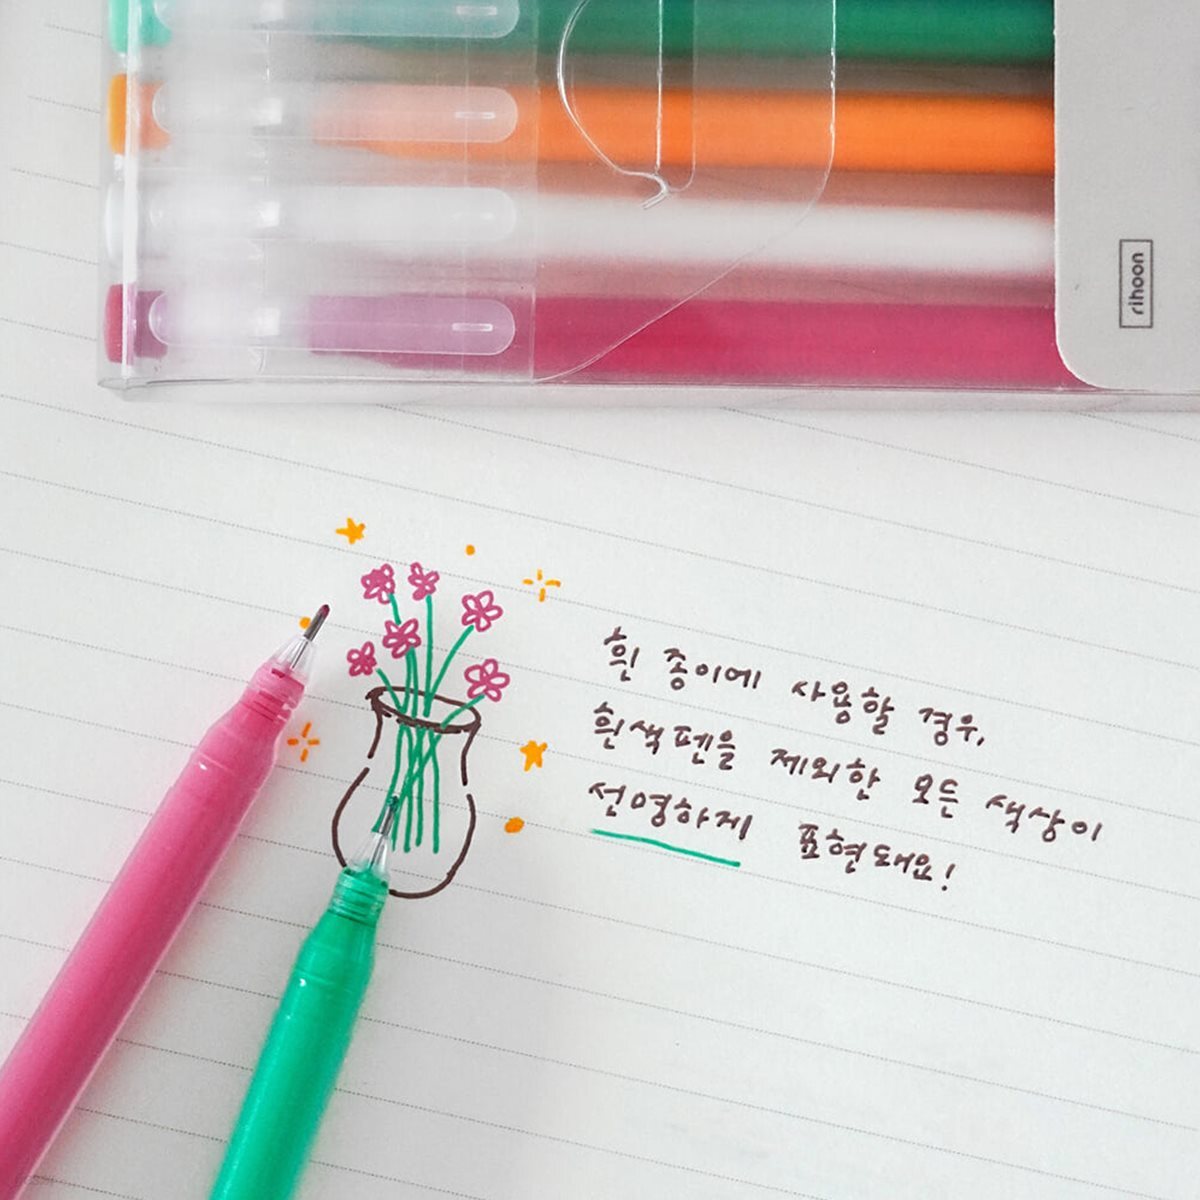 rihoon
흰 종이에 사용할 경우,
흰색펜을 제외한 모든 색상이
선명하게 표현돼요!